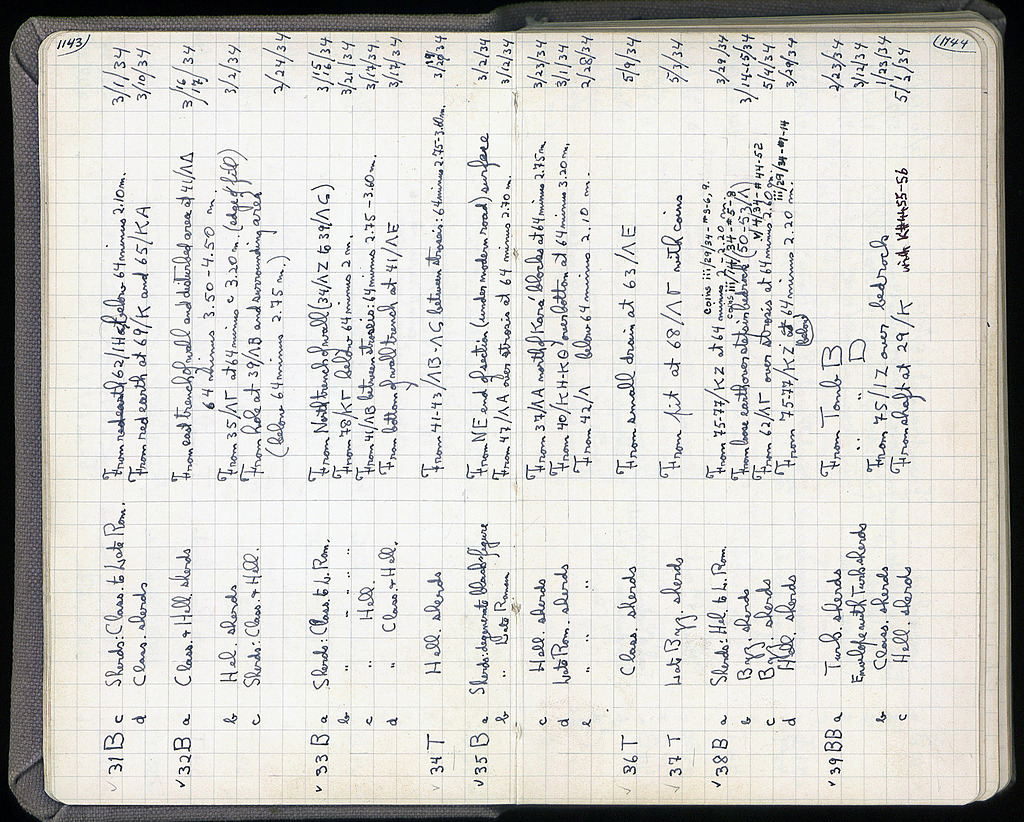 1143
✓ 31 B c Sherds: Class. to Late Rom. From red earth 62/ΙΗ of below 64 minus 2.10 m. 3/1/34
d Class. sherds From red earth at 69/Κ and 65/ΚΑ 3/10/34
✓ 32 B a Class. & Hell. sherds From east trench of wall and disturbed area of 41/ΛΔ 3/16/34 17/
64 minus 3.50-4.50 m
b Hel. sherds From 35/ΛΓ at 64 minus c 3.20 m. (edge of fill) 3/2/34
c Sherds: Class. & Hell. From hole at 39/ΛΒ and surrounding area
(below 64 minus 2.75 m.) 2/24/34
✓ 33 B a Sherds: Class. to L. Rom. From North trench of wall (34/ΛΖ to 39/ΛΓ) 3/15/34 16/
b " " " " From 78/ΚΓ below 64 minus 2 m. 3/21/34
c " Hell. From 41/ΛΒ between strosis: 64 minus 2.75-3.60 m. 3/17/34
d " Class. & Hell. From bottom of wall trench at 41/ΛΕ 3/17/34
✓ 34 T Hell. sherds From 41-43/ΛΒ-ΛΓ between strosis: 64 minus 2.75-3.60 m. 3/19/34 20/
✓ 35 B a Sherds: degenerate black figure From NE end of section (under modern road) surface 3/2/34
b " Late Roman From 47/ΛΑ over strosis at 64 minus 2.70 m. 3/12/34
1144
c Hell. sherds From 37/ΛΑ north of Kara' blocks at 64 minus 2.75 m 3/23/34
d Late Rom. sherds From 40/ΚΗ-ΚΘ over bottom at 64 minus 3.20 m. 3/1/34
e " " From 42/Λ below 64 minus 2.10 m. 2/28/34
✓ 36 T Class. sherds From small drain at 63/ΛΕ 5/9/34
✓ 37 T Late Byz sherds From pit at 68/ΛΓ with coins 5/3/34
coins iii/29/34-#3-6, 9.
✓ 38 B a Sherds: Hel. to L. Rom. From 75-77/ΚΖ at 64 minus 2.-2.20 m. 3/29/34
b Byz. sherds From loose earth over steps in bedrock (50-53/Λ) 3/14-15/34
c Byz. sherds From 62/ΛΓ over strosis at 64 minus 2.60 m. 5/4/34
v/4/34-#44-52
d Hell. sherds From 75-77/ΚΖ at 64 minus 2.20 m. 3/29/34
(below) iii/29/34-#1-14
✓ 39 BB a Turk. sherds From Tomb B 2/23/34
Envelope with Turk sherds " " D 3/12/34
b Class. sherds From 75/ΙΖ over bedrock 1/23/34
c Hell. sherds From shaft at 29/Κ with #55-56 5/2/34